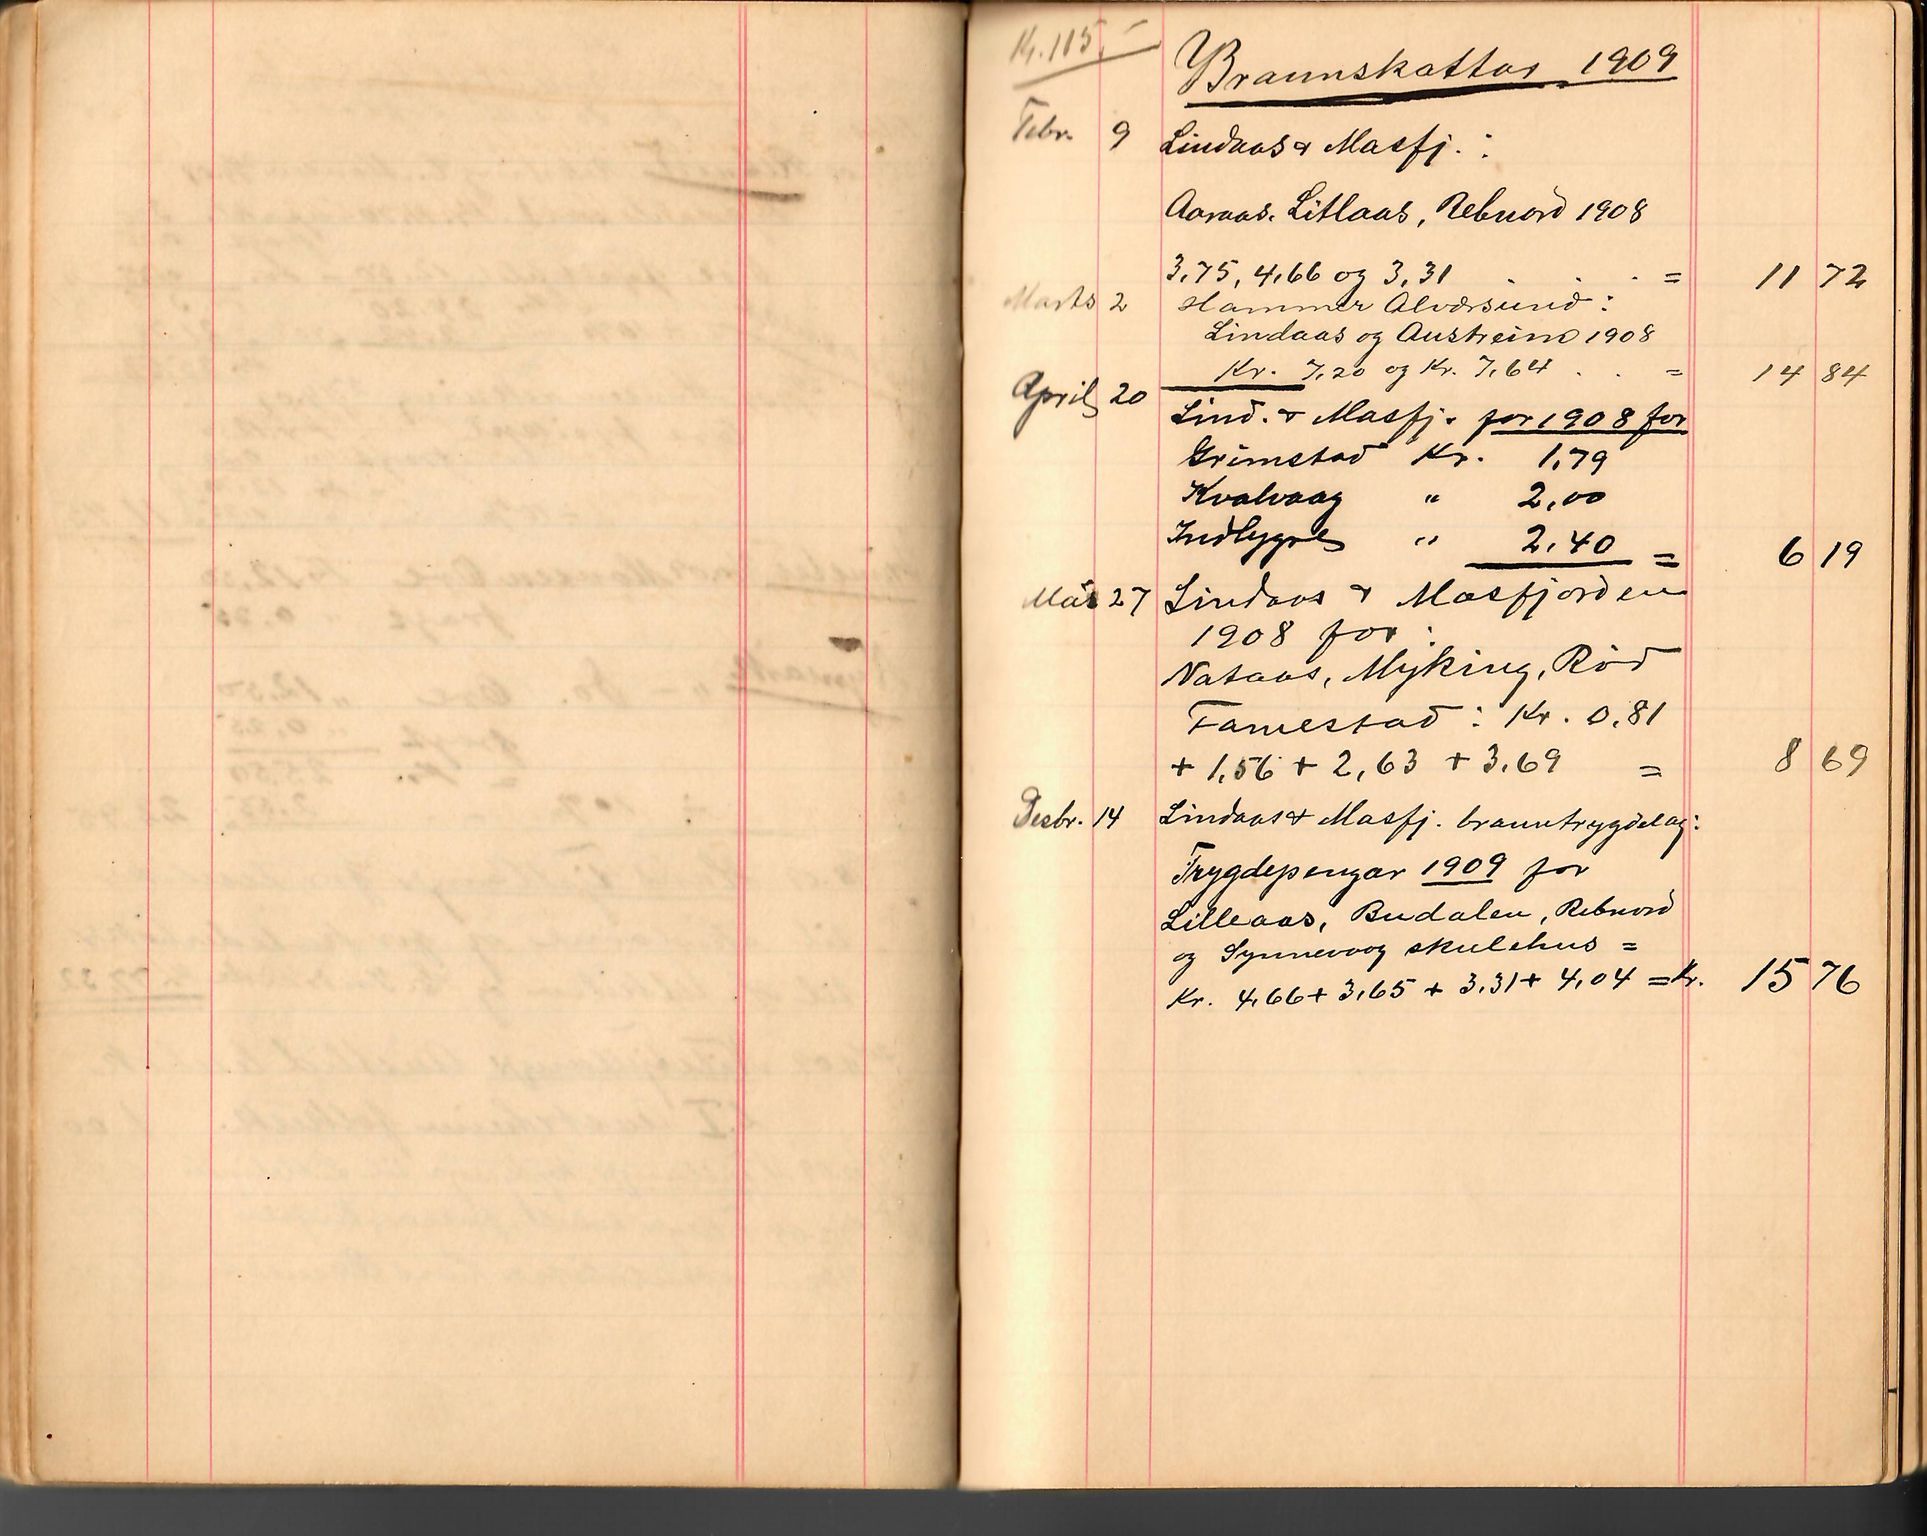 Kr. 115,-
Braunskattar 1909
Febr. 9 Lindaas & Masfj. :
Aaraas. Litlaas, Rebnord 1908
3,75, 4,66 og 3,31 . . . = 11 72
Marts 2 Hammer Alversund :
Lindaas og Austreim 1908
Kr. 7,20 og Kr. 7,64 . . = 14 84
April 20 Lind. & Masfj. for 1908 for
Grimstad Kr. 1,79
Kvalvaag " 2,00
Indbygre " 2,40 = 6 19
Mai 27 Lindaas & Masfjorden
1908 for :
Nataas, Myking, Röd
Famestad : Kr. 0,81
+ 1,56 + 2,63 + 3,69 = 8 69
Desbr. 14 Lindaas & Masfj. branntrygdelag:
Trygdepengar 1909 for
Lilleaas, Budalen, Rebnord
og Synnevaag skulehus =
Kr. 4,66 + 3,65 + 3,31 + 4,04 = Kr. 15 76